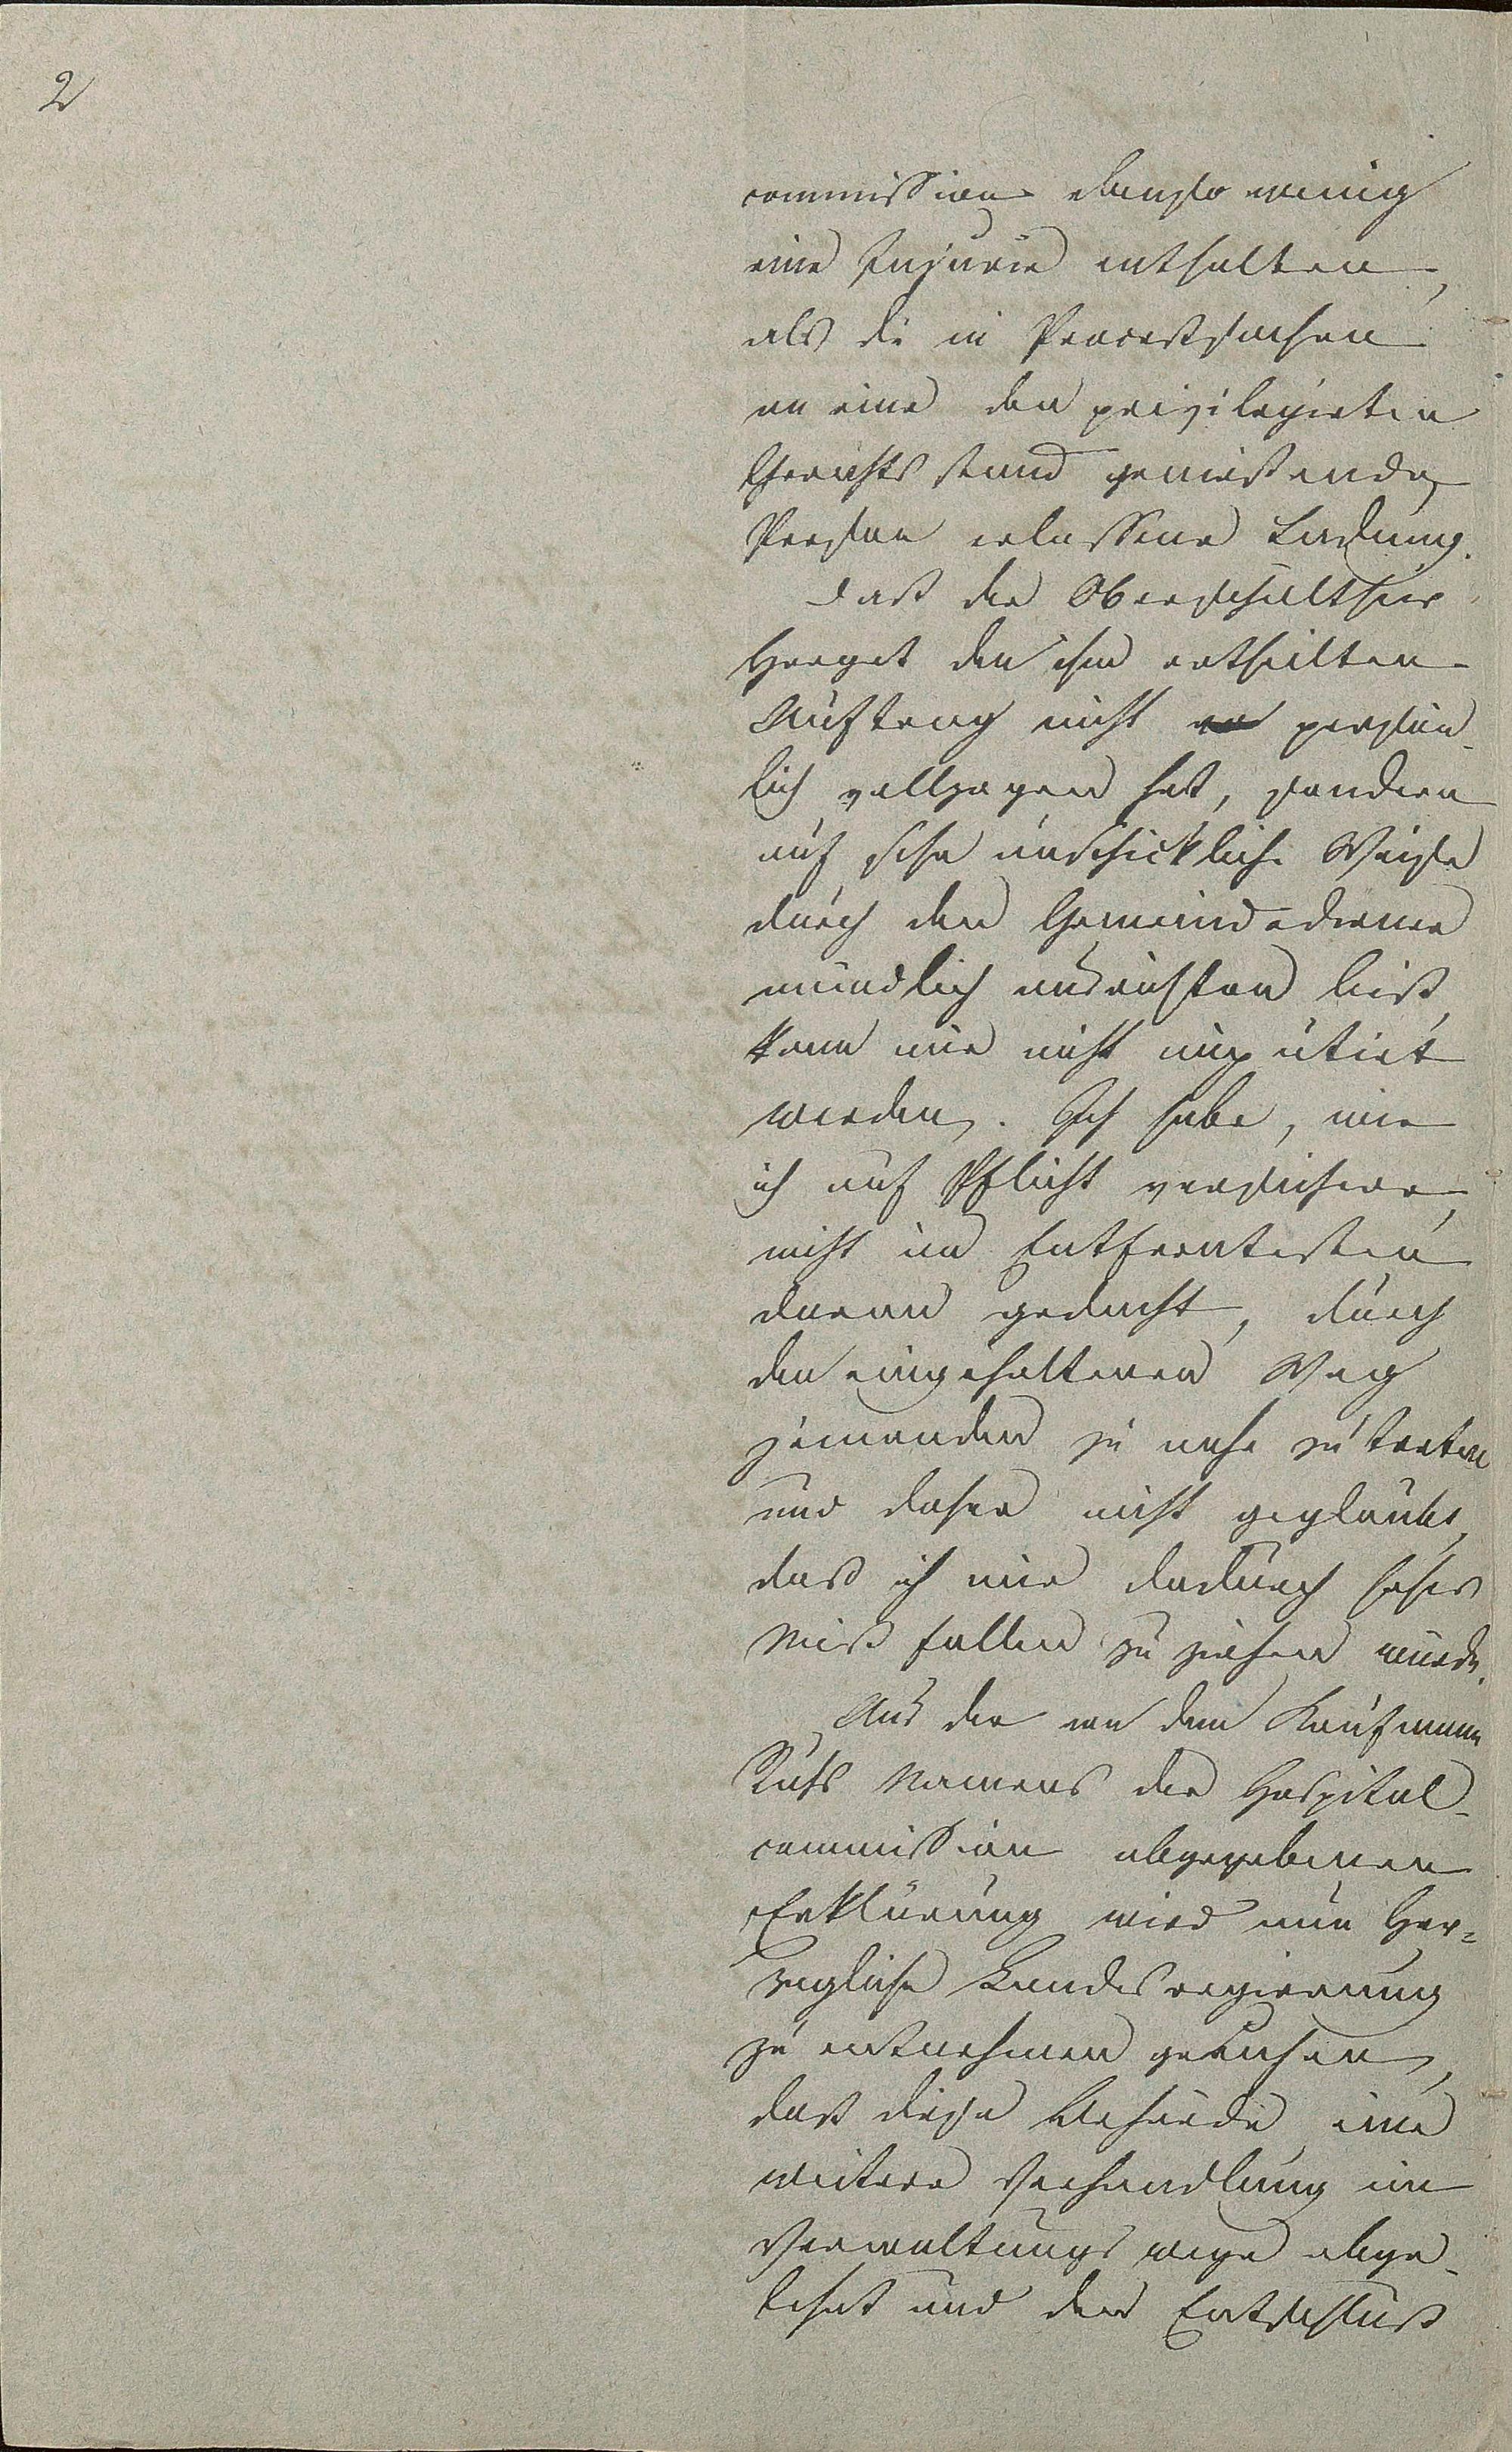 2
commission ebenso wenig
eine Injurie enthalten,
als die in Processsachen
an eine den privilegirten
Gerichtsstand genießende
Person erlassene Ladung.
Daß der Oberschultheis
Herget den ihm ertheilten
Auftrag nicht persön-
lich vollzogen hat, sondern
auf sehr unschickliche Weise
durch den Gemeindediener
mündlich ausrichten ließ,
kann mir nicht imputirt
werden. Ich habe, wie
ich auf Pflicht versichere,
nicht im Entferntesten
daran gedacht, durch
den eingehaltenen Weg
jemanden zu nahe zu treten
und daher nicht geglaubt,
daß ich mir dadurch hohes
Mißfallen zu ziehen würde.
Aus der von dem Kaufmann
Ruß Namens der Hospital-
commission abgegebenen
Erklärung wird nun Her-
zogliche Landesregierung
zu entnehmen geruhen,
daß diese Behörde eine
weitere Verhandlung im
Verwaltungswege abge-
lehnt und den Entschluß